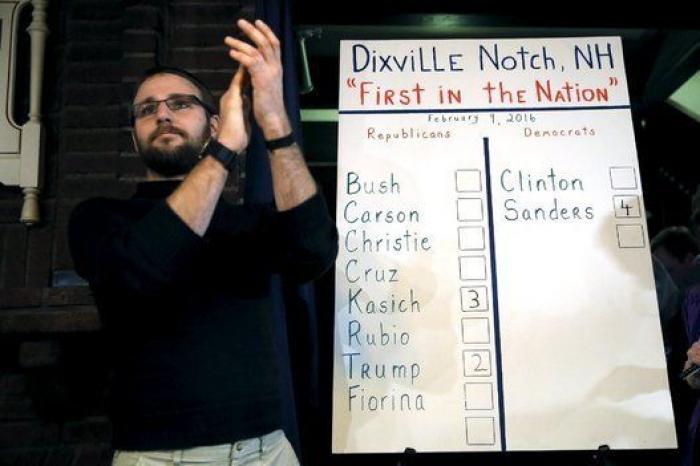 DIXVILLE NOTCH, NH
"FIRST IN the NATION"
February 9, 2016
Republicans
Bush
Carson
Christie
Cruz
Kasich 3
Rubio
Trump 2
Fiorina
Democrats
Clinton
Sanders 4